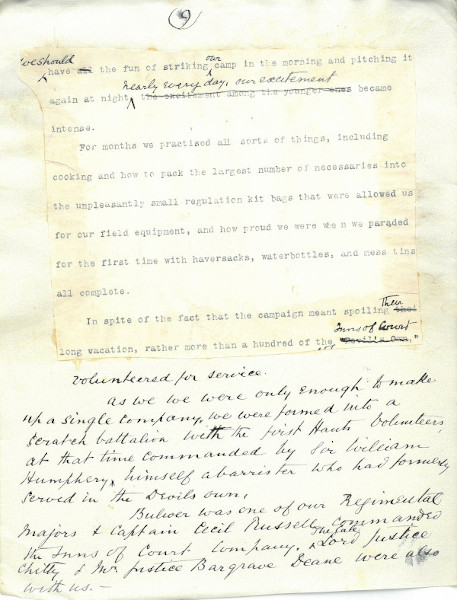 9
we should our
have all the fun of striking camp in the morning and pitching it
nearly every day, our excitement
again at night the excitement among the younger ones became
intense.
For months we practised all sorts of things, including
cooking and how to pack the largest number of necessaries into
the unpleasantly small regulation kit bags that were allowed us
for our field equipment, and how proud we were when we paraded
for the first time with haversacks, waterbottles, and mess tins
all complete.
Their
In spite of the fact that the campaign meant spoiling their
Inns of Court
long vacation, rather more than a hundred of the "Devil's Own,"
Volunteered for service.
As we we were only enough to make
up a single company, we were formed into a
Scratch battalion with the first Hants Volunteers,
at that time commanded by Sir William
Humphery, himself a barrister who had formerly
served in the Devils own,
Bulwer was one of our Regimental
Majors & Captain Cecil Russell commanded
The late
the Inns of Court Company. Lord Justice
Chitty & Mr. Justice Bargrave Deane were also
with us. —